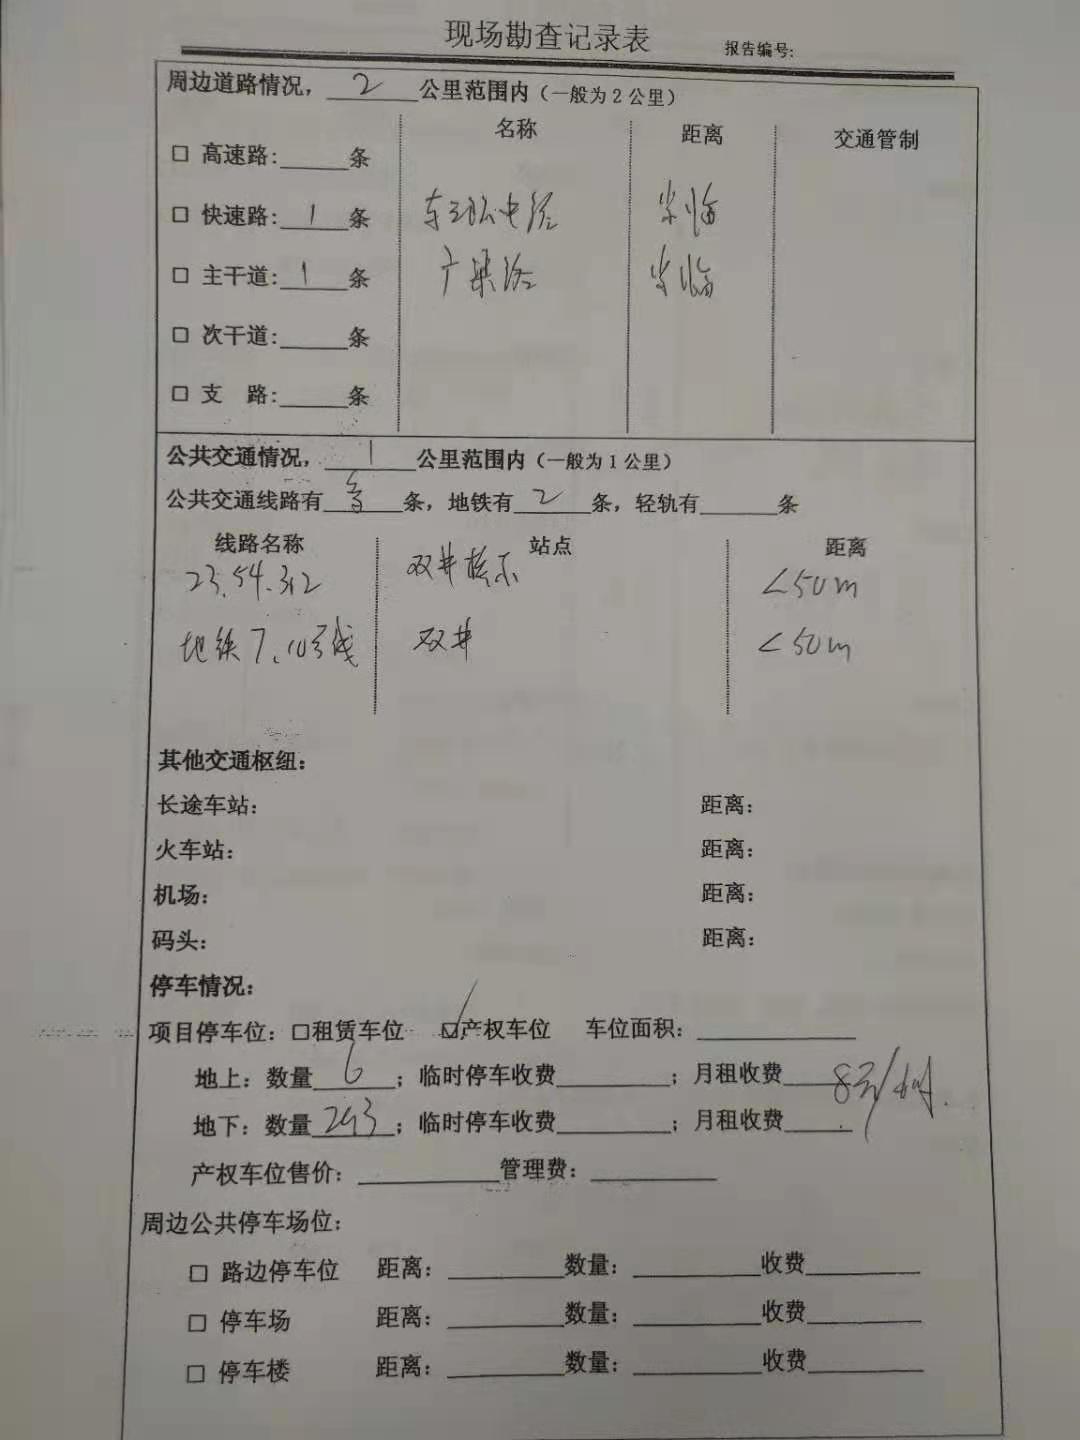 现场勘查记录表 报告编号:
周边道路情况，2公里范围内（一般为2公里）
名称 距离 交通管制
□ 高速路:______条
□ 快速路:1条 东三环中路 紧临
□ 主干道:1条 广渠路 紧临
□ 次干道:______条
□ 支 路:______条
公共交通情况，1公里范围内（一般为1公里）
公共交通线路有多条，地铁有2条，轻轨有______条
线路名称 站点 距离
23.54.312 双井桥东 <50m
地铁7.10号线 双井 <50m
其他交通枢纽：
长途车站： 距离：
火车站： 距离：
机场： 距离：
码头： 距离：
停车情况：
项目停车位：□租赁车位 ☑产权车位 车位面积：______
地上：数量6；临时停车收费______；月租收费______ 8元/小时.
地下：数量293；临时停车收费______；月租收费______
产权车位售价：______管理费：______
周边公共停车场位：
□ 路边停车位 距离：______数量：______收费______
□ 停车场 距离：______数量：______收费______
□ 停车楼 距离：______数量：______收费______